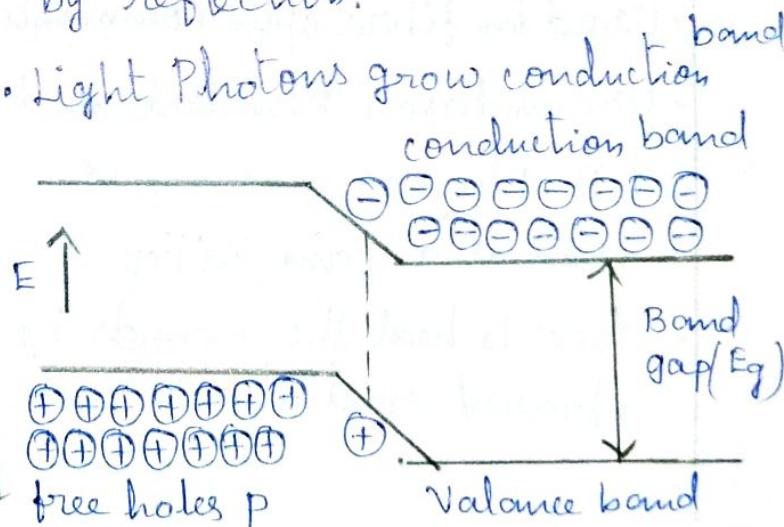 by reflection.
band
• Light Photons grow conduction
conduction band
E
Band
gap(Eg)
free holes p
Valance band